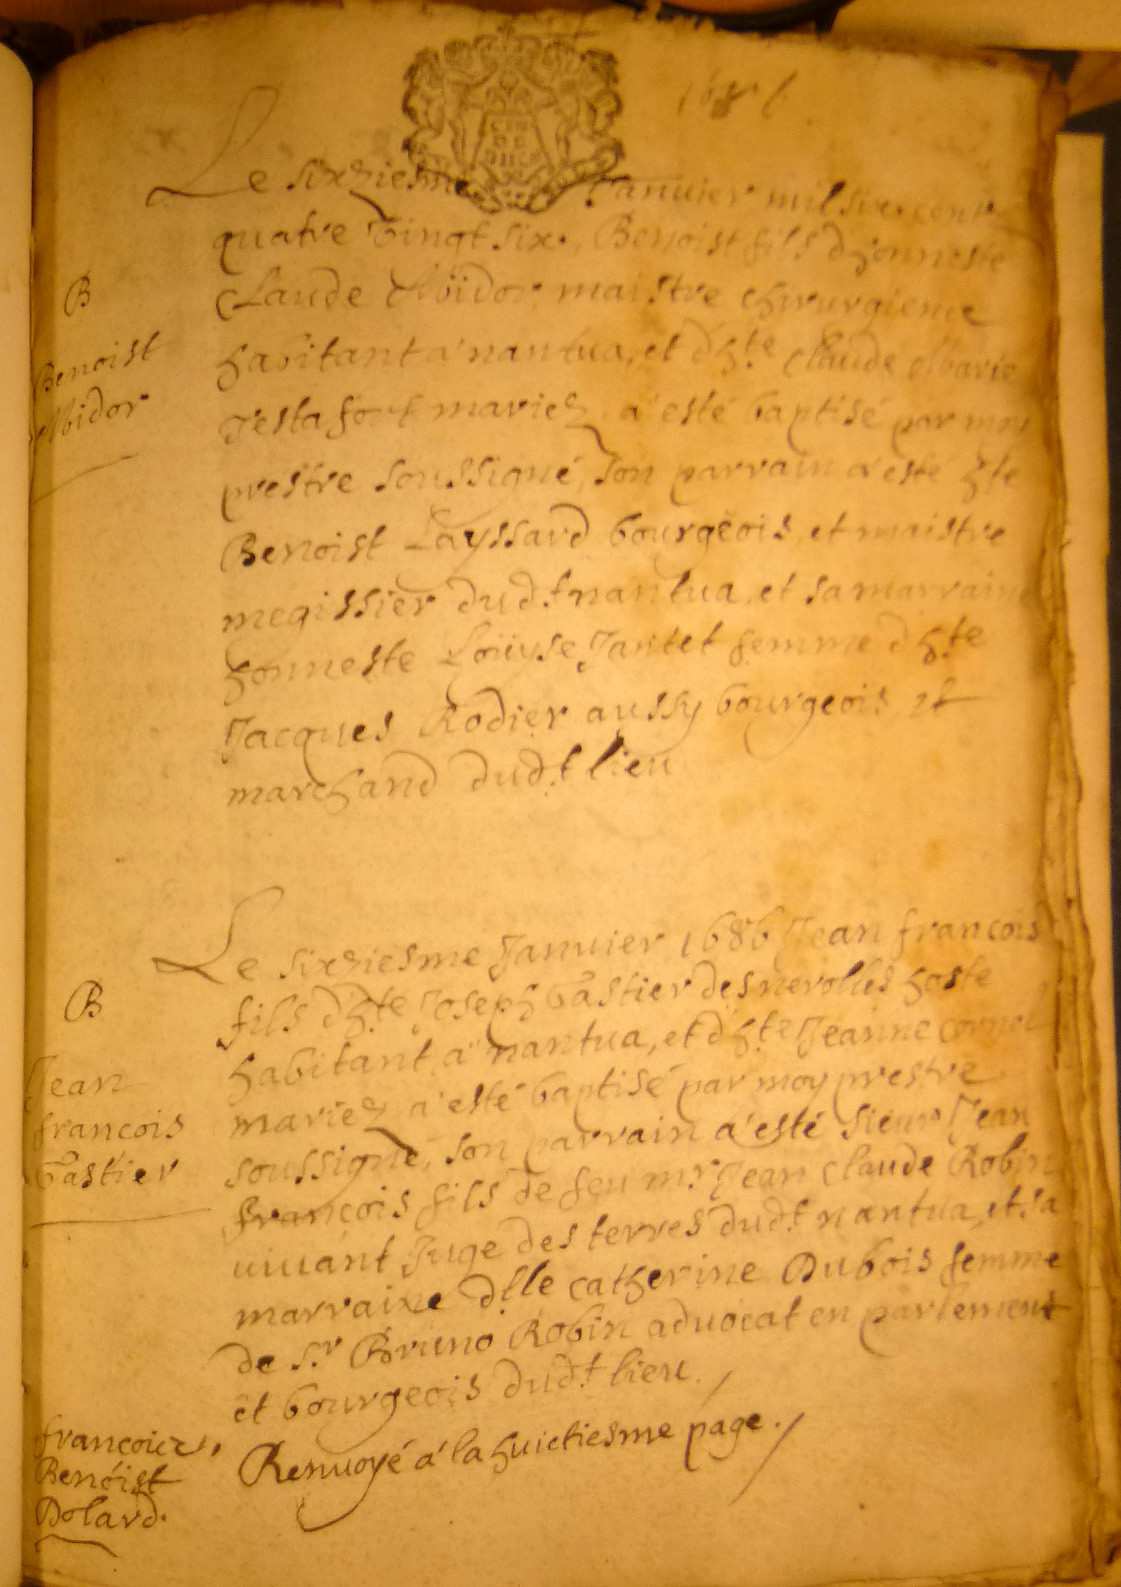 Le sixziesme Januier mil six cent
quatre vingt six, Benoist fils d'honneste
Claude Moidor maistre chirurgien
habitant a nantua, et d'h.te Claude Marie
Testafort mariez, a esté baptisé par moy
prestre soussigné, son parrain a esté h.te
B
Benoist
Midor
Benoist Layssard bourgeois, et maistre
megissier dud.t nantua, et sa marraine
honneste Loüyse Jantet femme d'h.te
Jacques Rodier aussy bourgeois et
marchand dud.t lieu
Le sixziesme Januier 1686 Jean françois
fils d'h.te Joseph Gastier des nerolles hoste
habitant a nantua, et d'h.te Jeanne
mariez a esté baptisé par moy prestre
soussigné, son parrain a esté sieur Jean
françois fils de feu m.r Jean Claude Robin
viuant Juge des terres dud.t nantua, et sa
marraine d.lle catherine Dubois femme
de s.r Bruno Robin aduocat en parlement
et bourgeois dud.t lieu.
B
Jean
françois
Gastier
Renuoyé a la huictiesme page.
françois
Benoist
Dolard.